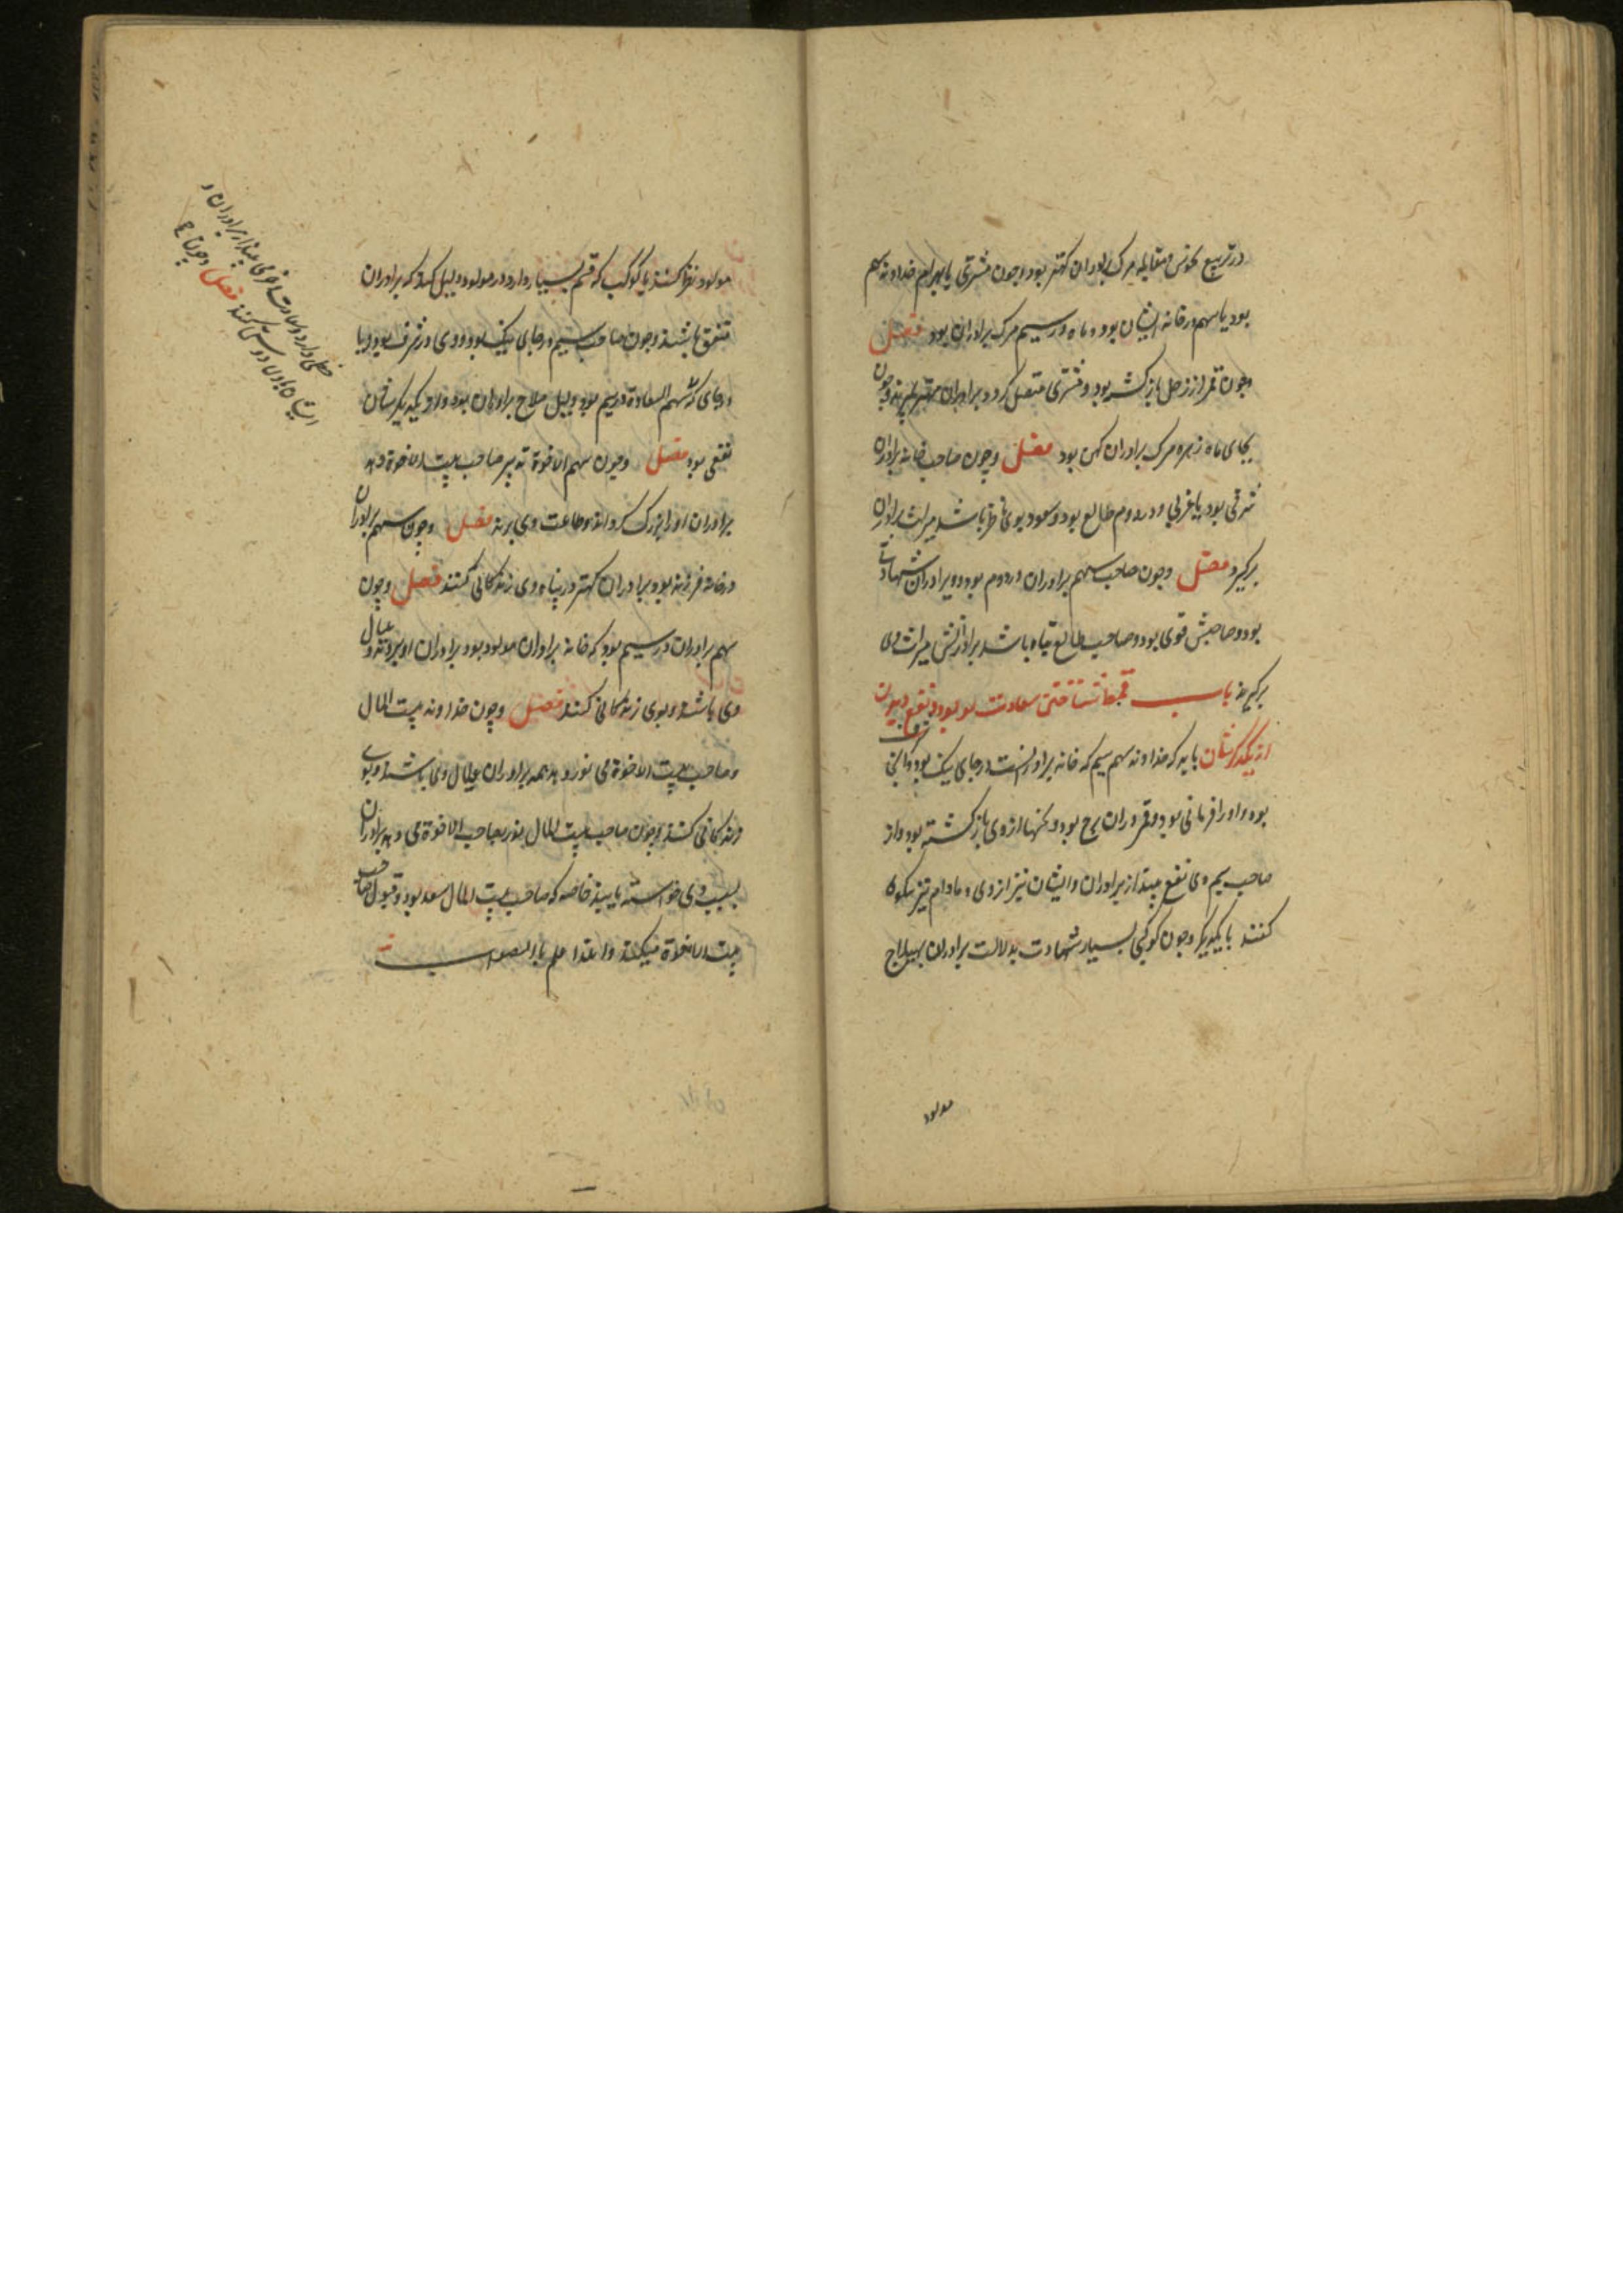 در تربیع نحوس و مقابله مرک برادران کهتر بود و چون مشتری یا بهرام خداوند سهم
بود یا سهم در خانه ایشان بود و ماه در سیم مرک برادران بود فصل
و چون قمر از زحل باز کشته بود و بمشتری متصل کردد برادران مهتر بمیرند و چون
بجای ماه زهره مرک برادران کهن بود فصل و چون صاحب خانه برادران
شرقی بود یا غربی و در دوم طالع بود و سعود بوی ناظر باشد میراث برادران
برکیرد فصل و چون صاحب سهم برادران در دوم بود و برادران شهادت
بود و صاحبش قوی بود و صاحب طالع تباه باشد برادرانش میراث وی
برکیرند باب شناختن سعادت مولود و نفع دیدن
از یکدیکرشان باید که خداوند سهم سیم که خانه برادرانست در جای نیک بود
بود و او را فرمانی بود و قمر در آن برج بود و کنهها از وی باز کشته بود و از
صاحب سیم وی نفع بیند از برادران و ایشان نیز از وی و مادام نیز نیکویی
کنند با یکدیکر و چون کوکبی بسیار شهادت بدلالت برادران بهیلاج
مولود
مولود نظر کنند یا کوکب که قسم بسیار دارد در مولود دلیل کند که برادران
متفق باشند و چون صاحب سیم در جای نیک بود و وی در شرف بود و یا
در جای که سهم السعادة در سیم بود دلیل صلاح برادران بود و از یکدیکرشان
نفعی بود فصل و چون سهم الاخوة تدبیر صاحب بیت الاخوة دهد
برادران او را بزرک کردانند و طاعت وی برند فصل و چون سهم برادران
در خانه فرزند بود برادران کهتر در پناه وی زندکانی کنند فصل و چون
سهم برادران در سیم بود که خانه برادران مولود بود برادران او بروند و عیال
وی باشند و بوی زندکانی کنند فصل و چون خداوند بیت المال
و صاحب بیت الاخوة می نور دهد همه برادران عیال وی باشند و بوی
زندکانی کنند و چون صاحب بیت المال نور بصاحب الاخوة می دهد برادران
بسبب وی خواسته یابند خاصه که صاحب بیت المال سعد بود و قبول صاحب
بیت الاخوة میکند والله اعلم بالصواب
حظی دارد و سعادت از برادران و
ایشان با وی دوستی کنند فصل و چون